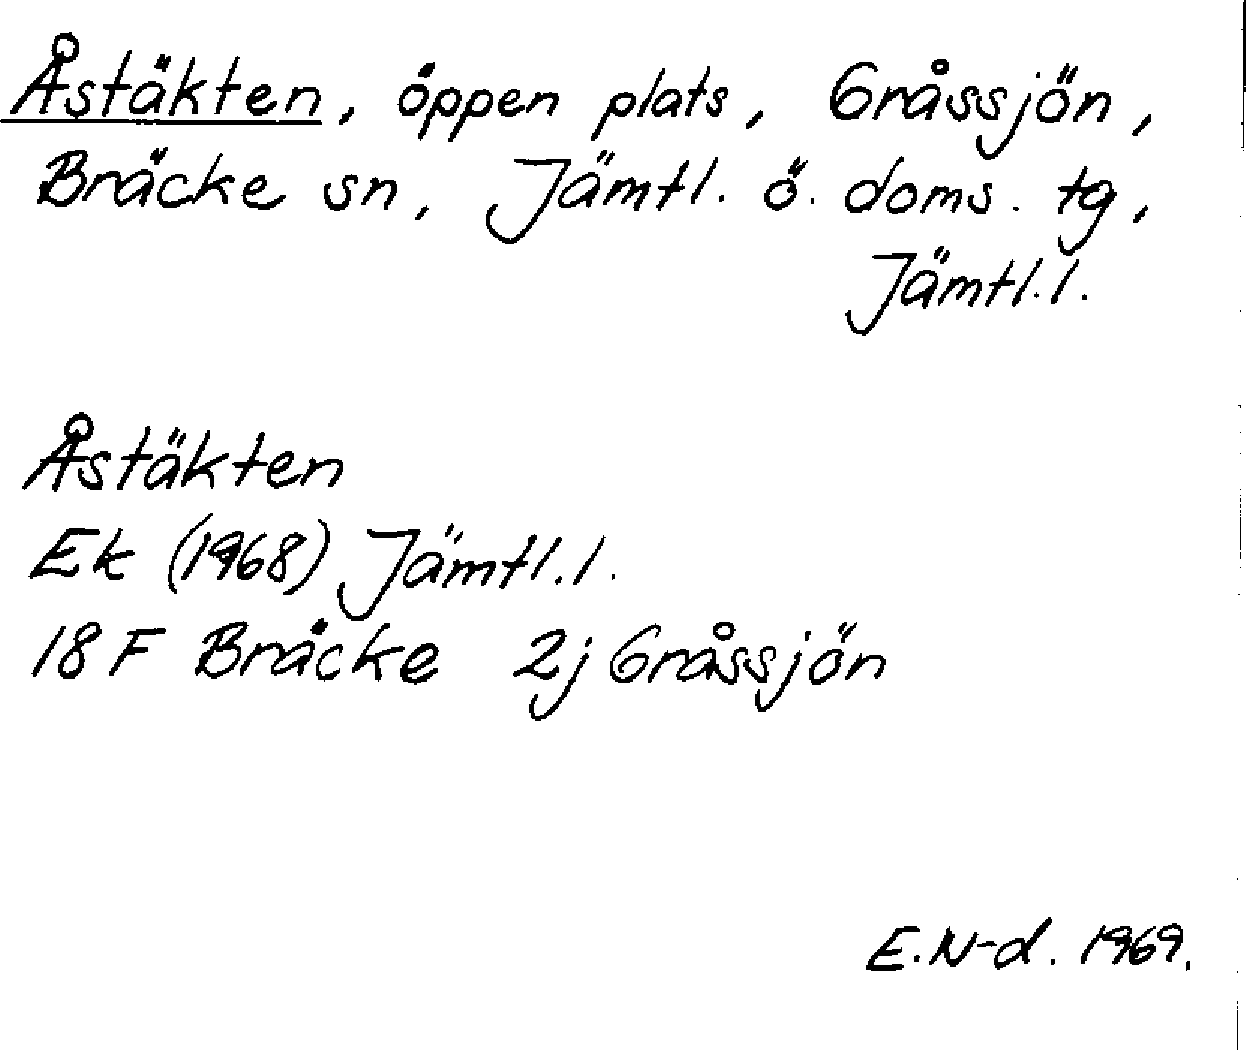 Åstäkten, öppen plats, Gråssjön,
Bräcke sn, Jämtl. ö. doms. tg,
Jämtl.l.
Åstäkten
Ek (1968) Jämtl.l.
18 F Bräcke 2j Gråssjön
E.N-d. 1969.